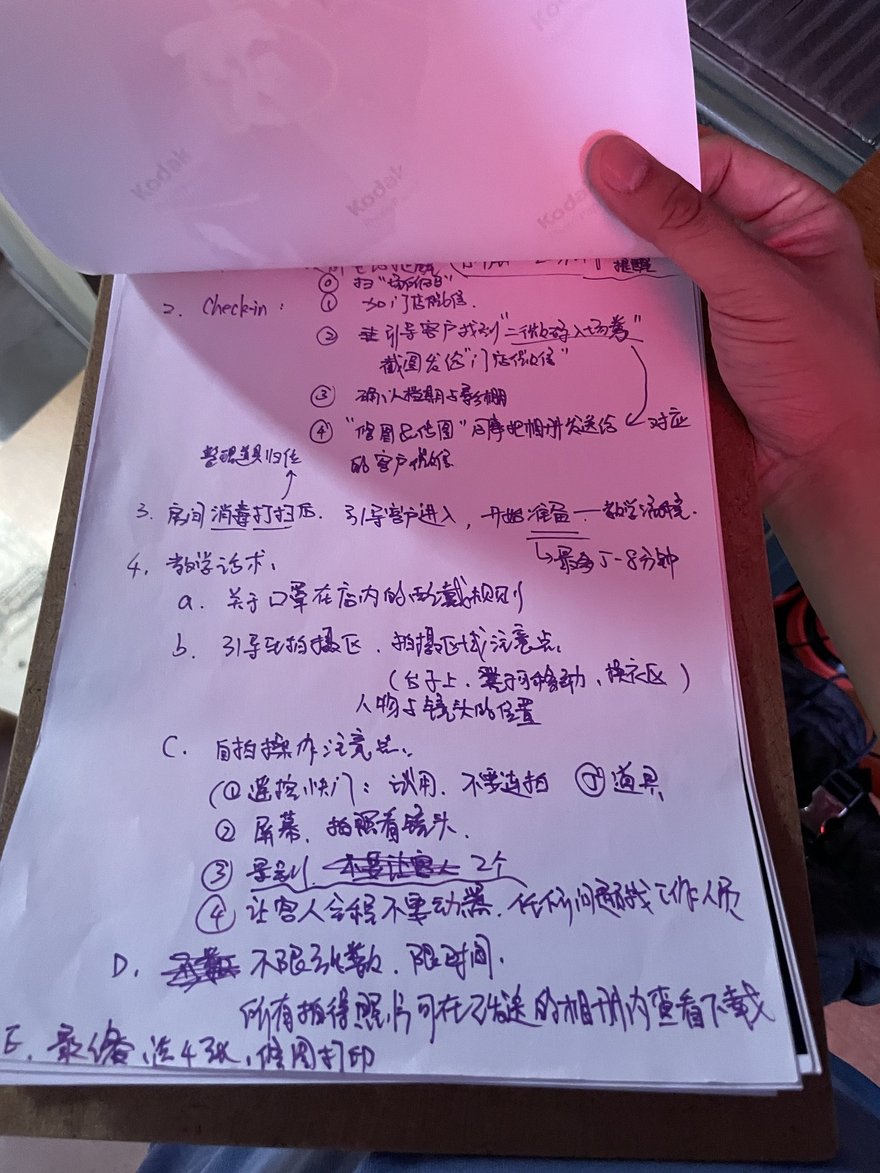 Kodak
Kodak
Kodak
Kodak
提醒
⓪ 扫"场所码"
2. Check-in: ① 加门店微信.
② 引导客户找到"二微码入场券"
截图发给"门店微信"
③ 确认档期与影棚
④ "修图已传图" 相册发送给 对应
的客户微信
整理道具归位
3. 房间消毒打扫后. 引导客户进入, 开始准备—教学环境.
↳最多5-8分钟
4. 教学话术:
a. 关于口罩在店内的戴规则
b. 引导至拍摄区. 拍摄区域注意点.
(台子上. 凳子可移动. 换衣区)
人物与镜头的位置
C. 自拍操作注意点:
(① 遥控快门: 试用. 不要连拍 ⑤ 道具
② 屏幕. 拍照看镜头.
③ 景别. 2个
④ 让客人全程不要动器. 任何问题找工作人员
D. 不限张数. 限时间.
所有拍得照片可在已发送的相册内查看下载
E. 最终选4张, 修图打印